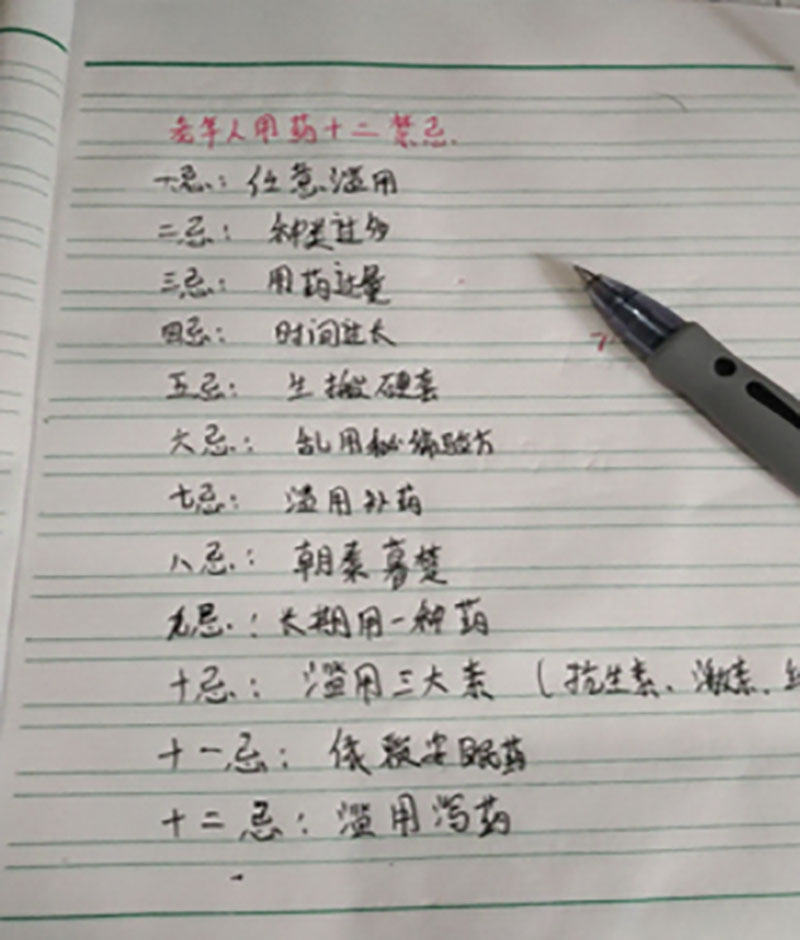 老年人用药十二禁忌.
一忌: 任意滥用
二忌: 种类过多
三忌: 用药过量
四忌: 时间过长
五忌: 生搬硬套
六忌: 乱用秘偏验方
七忌: 滥用补药
八忌: 朝秦暮楚
九忌: 长期用一种药
十忌: 滥用三大素 (抗生素、激素、
十一忌: 依赖安眠药
十二忌: 滥用泻药